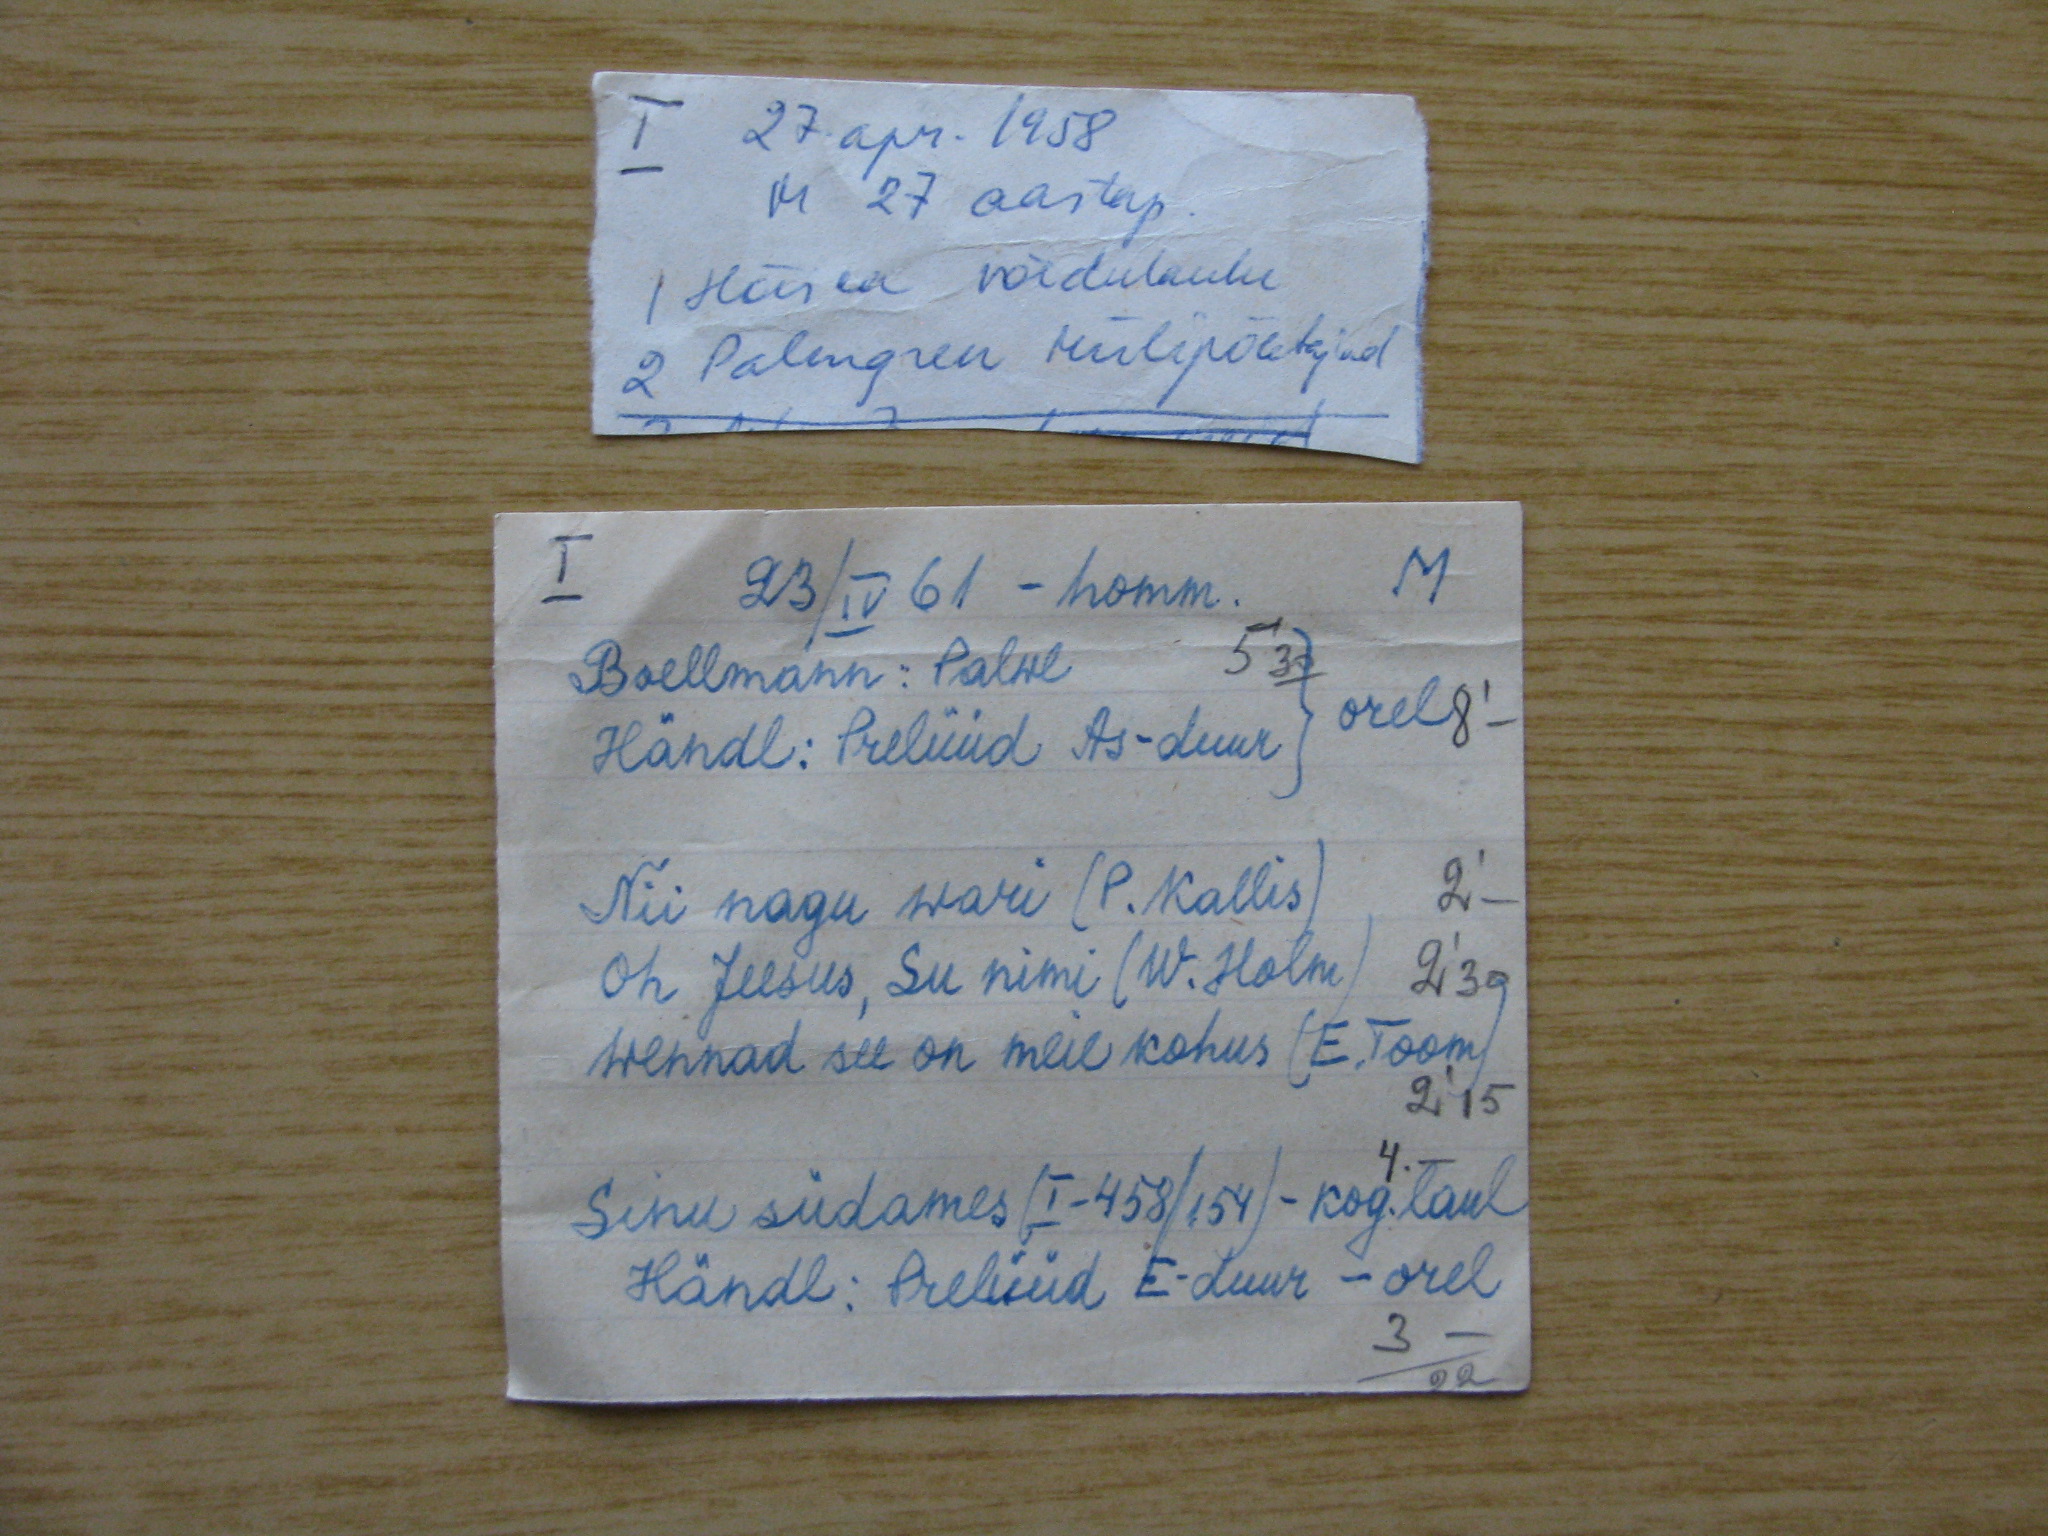 I 27. apr. 1958
M 27 aastap.
1 Hõiska võidulaulu
2 Palmgren Miilipõletajad
I 23/IV 61 - homm. M
Boellmann: Palwe 5'30
Händl: Prelüüd As-duur } orel 8'-
Nii nagu wari (P. Kallis) 2'-
Oh Jeesus, Su nimi (W. Holm) 2'30
Wennad see on meie kohus (E. Toom)
2'15
4.-
Sinu südames (I-458/154) - kog. laul
Händl: Prelüüd E-duur - orel
3 -
22